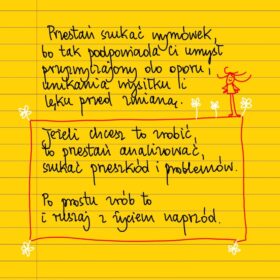 Przestań szukać wymówek,
bo tak podpowiada Ci umysł
przyzwyczajony do oporu,
unikania wysiłku li
lęku przed zmianą.
Jeżeli chcesz to zrobić,
to przestań analizować,
szukać przeszkód i problemów.
Po prostu zrób to
i ruszaj z życiem naprzód.